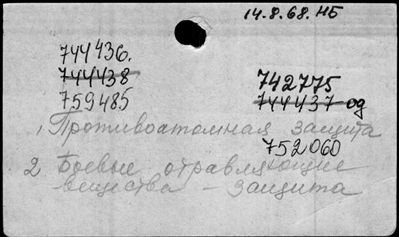 14.8.68. НБ
744436.
744438
759485
742775
744437-од
1, Противоатомная защита
752060
2 Боевые отравляющие
вещества - защита